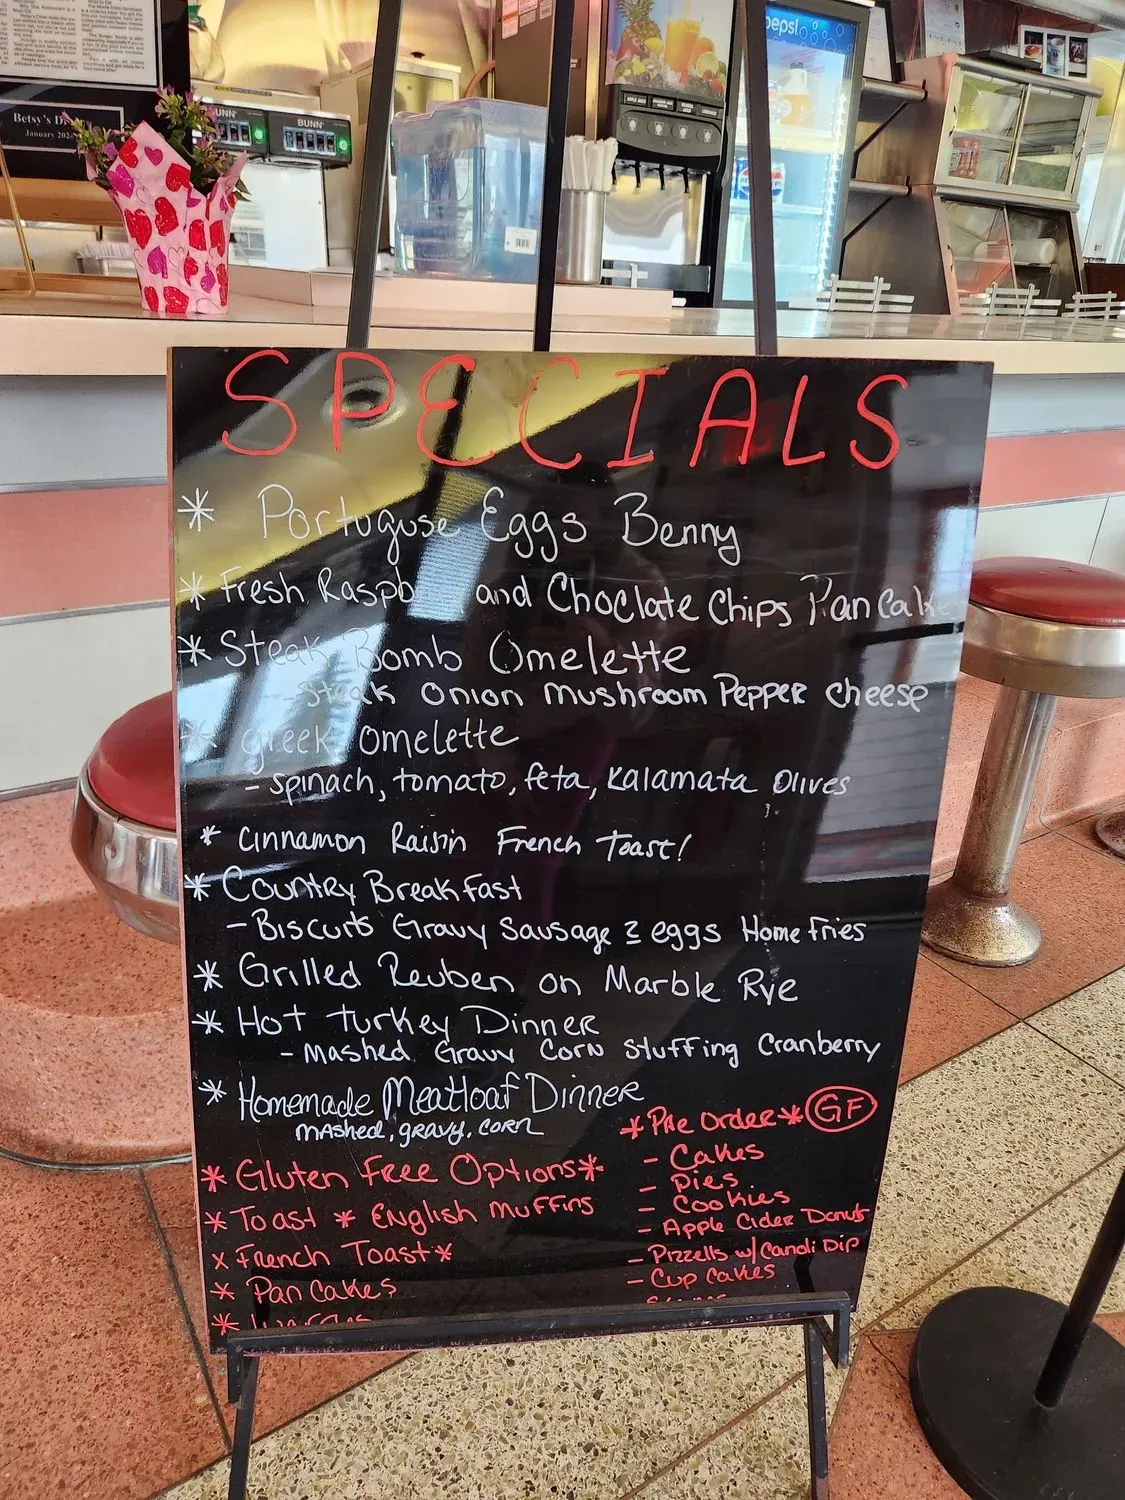 Betsy's Di
January 202
BUNN
BUNN
pepsi
SPECIALS
* Portuguse Eggs Benny
* Fresh Raspb and Choclate Chips Pancake
* Steak Bomb Omelette
steak onion mushroom Pepper cheese
* Greek omelette
- spinach, tomato, feta, Kalamata Olives
* Cinnamon Raisin French Toast!
* Country Breakfast
- Biscuits Gravy Sausage 2 eggs Home fries
* Grilled Reuben on Marble Rye
* Hot turkey Dinner
- Mashed Gravy Corn stuffing Cranberry
* Homemade Meatloaf Dinner
mashed, gravy, corn
* Gluten Free Options *
* Toast * English muffins
x French Toast *
* Pancakes
*
* Pre order * GF
- Cakes
- Pies
- Cookies
- Apple Cider Donuts
- Pizzells w/ Candi Dip
- Cup Cakes